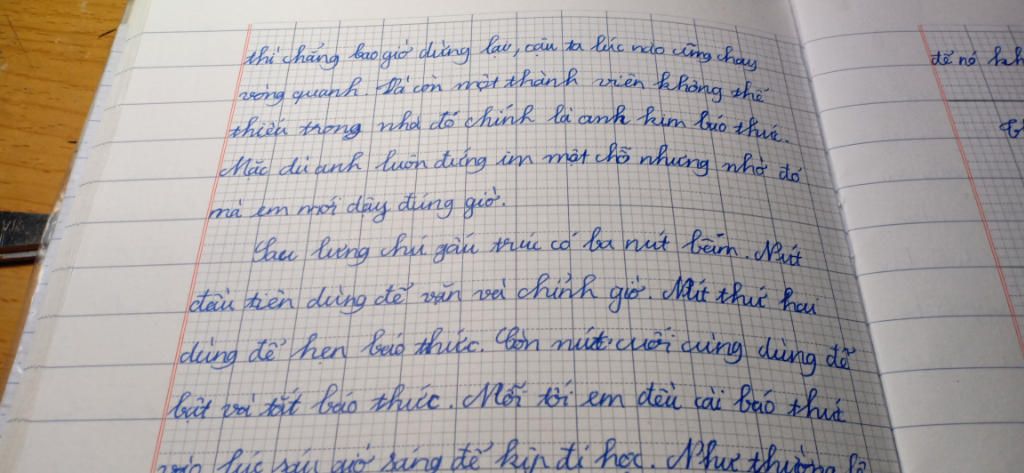 thì chẳng bao giờ dừng lại, cậu ta lúc nào cũng chạy
vòng quanh. Và còn một thành viên không thể
thiếu trong nhà đó chính là anh kim báo thức.
Mặc dù anh luôn đứng im một chỗ nhưng nhờ đó
mà em mới dậy đúng giờ.
Sau lưng chú gấu trúc có ba nút bấm. Nút
đầu tiên dùng để vặn và chỉnh giờ. Nút thứ hai
dùng để hẹn báo thức. Còn nút cuối cùng dùng để
bật và tắt báo thức. Mỗi tối em đều cài báo thức
vào lúc sáu giờ sáng để kịp đi học. Như thường lệ
để nó